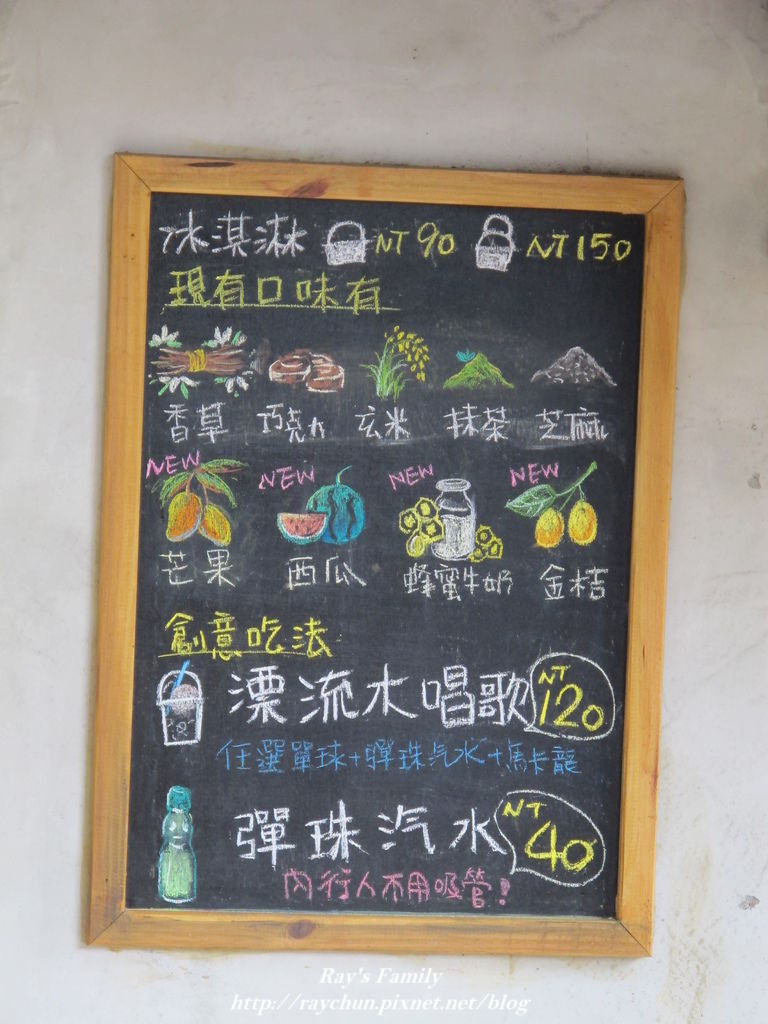 冰淇淋 NT90 NT150
現有口味有
香草 巧克力 玄米 抹茶 芝麻
NEW NEW NEW NEW
芒果 西瓜 蜂蜜牛奶 金桔
創意吃法
漂流水唱歌 NT120
任選單球+彈珠汽水+馬卡龍
彈珠汽水 NT40
內行人不用吸管!
Ray's Family
http://raychun.pixnet.net/blog